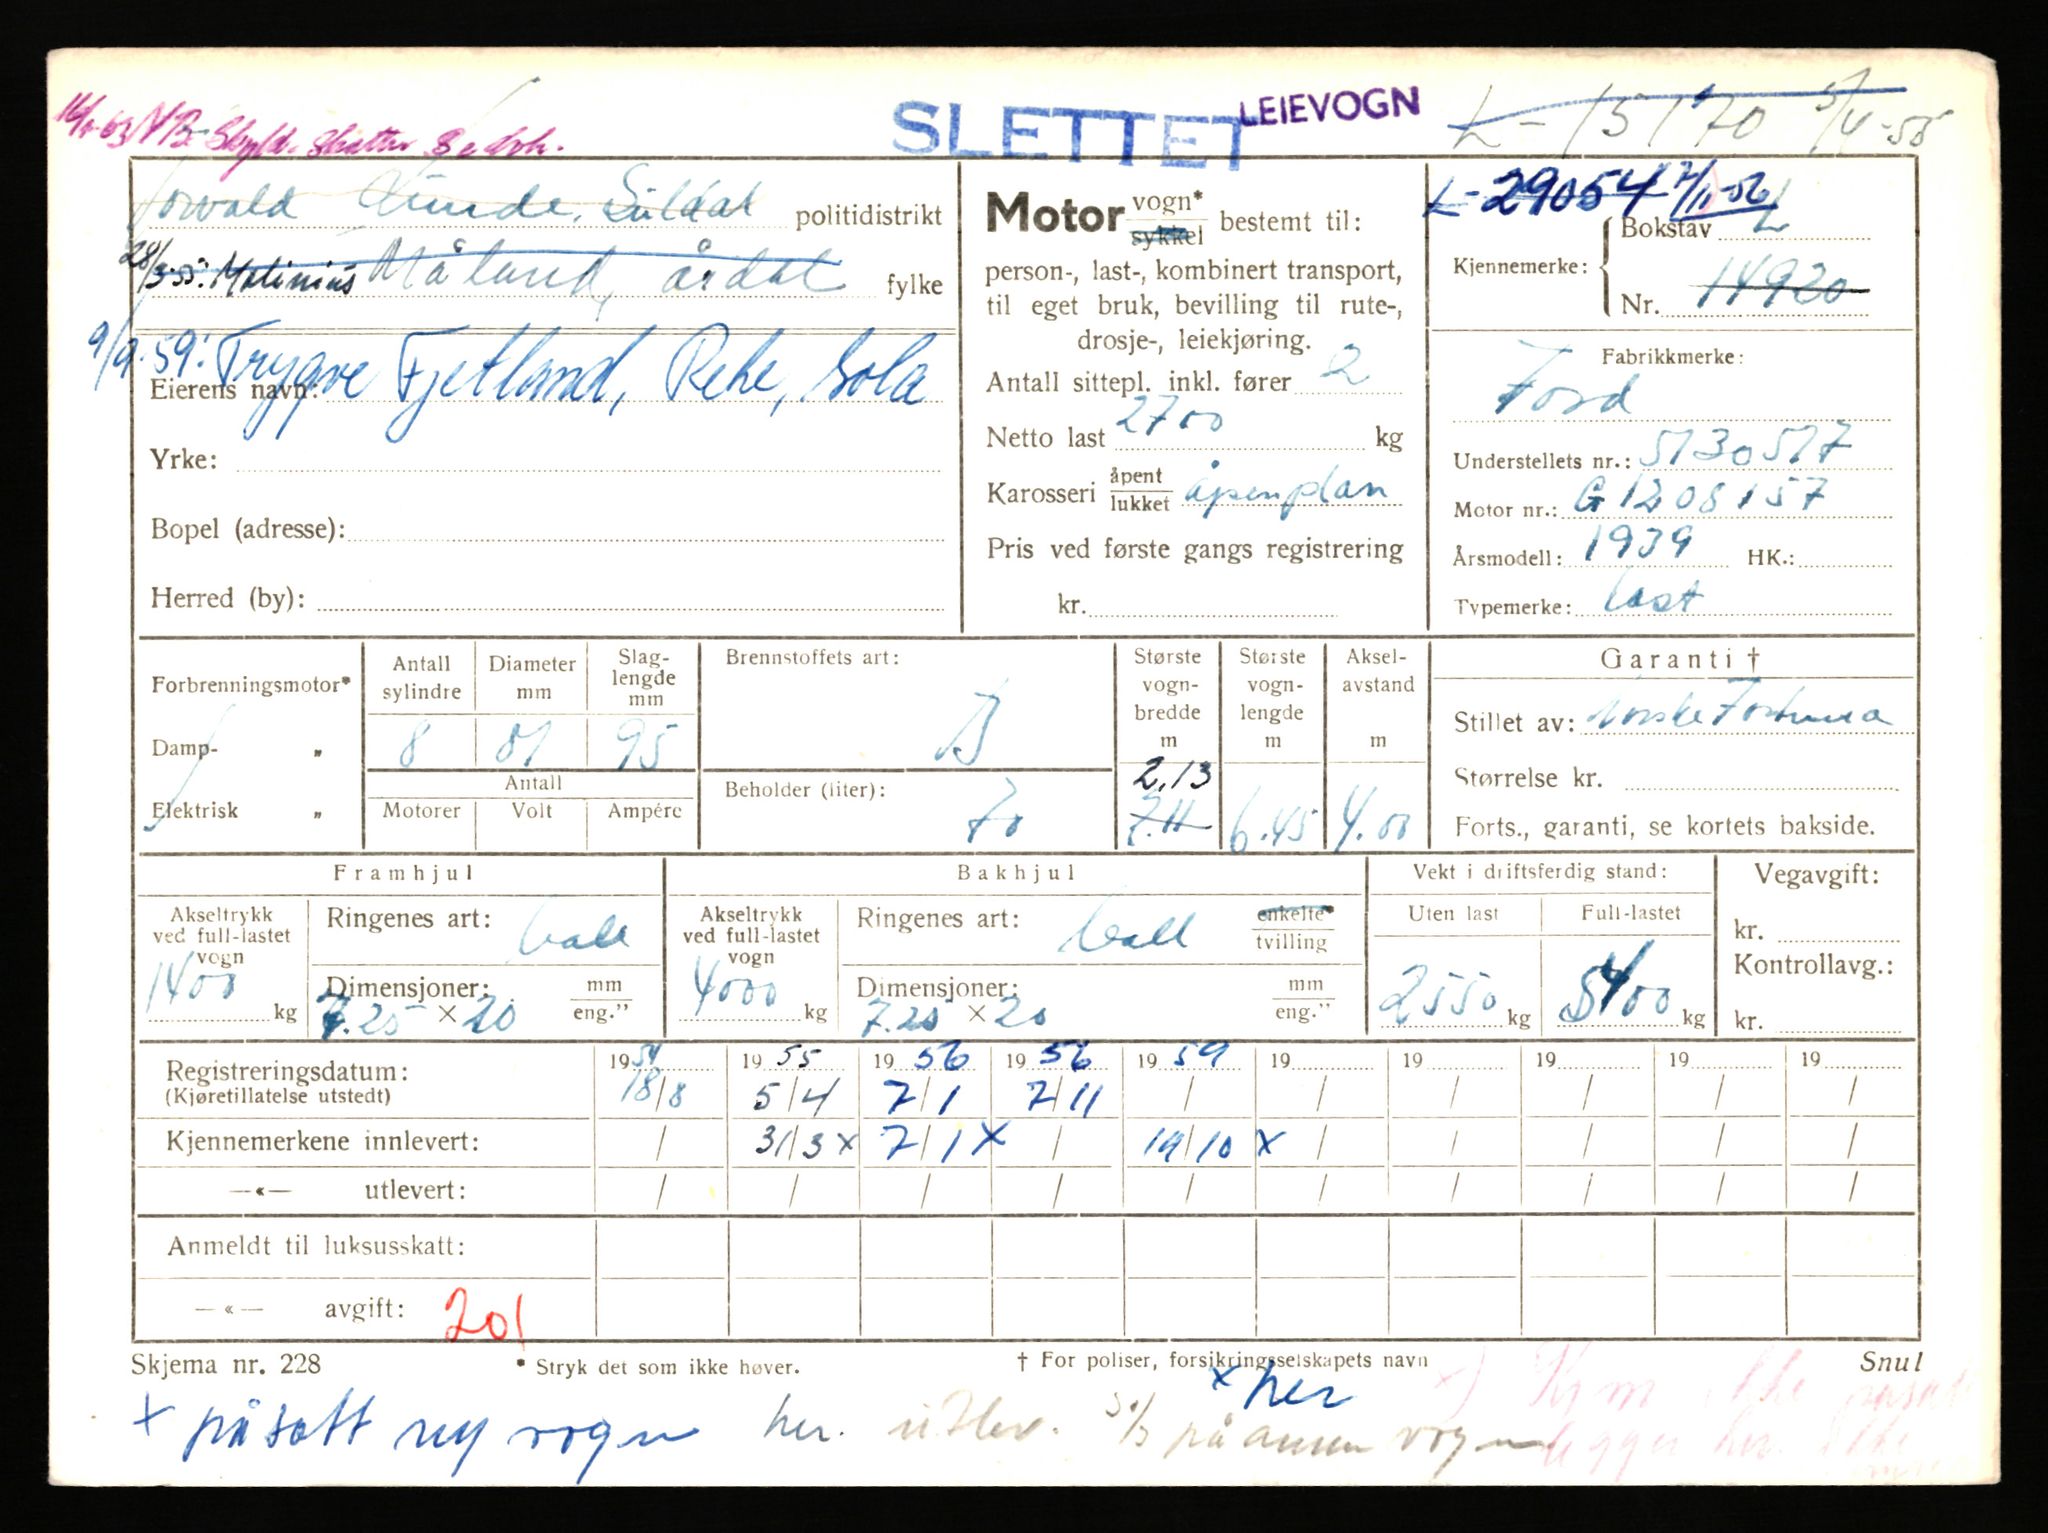 SLETTET LEIEVOGN L-15170 5/4-55
politidistrikt
28/3-55: Malinius Måland, Årdal fylke
9/9-59: Trygve Fjetland, Reke, Sola
Eierens navn:
Yrke:
Bopel (adresse):
Herred (by):
Motor vogn* sykkel bestemt til:
person-, last-, kombinert transport,
til eget bruk, bevilling til rute-,
drosje-, leiekjøring.
Antall sittepl. inkl. fører 2
Netto last 2700 kg
Karosseri åpent lukket åpen plan
Pris ved første gangs registrering
kr.
L-29054 7/11-56
Kjennemerke: Bokstav L
Nr. 14920
Fabrikkmerke:
Ford
Understellets nr.: 5130517
Motor nr.: G1208157
Årsmodell: 1939 HK.:
Typemerke: last
Forbrenningsmotor*
Damp- „
Elektrisk „
Antall sylindre Diameter mm Slag-lengde mm
8 81 95
Antall
Motorer Volt Ampére
Brennstoffets art:
B
Beholder (liter):
70
Største vogn-bredde m
2,13
Største vogn-lengde m
6.45
Aksel-avstand m
4.00
Garanti †
Stillet av: Norske Fortuna
Størrelse kr.
Forts., garanti, se kortets bakside.
Framhjul
Akseltrykk ved full-lastet vogn
1400 kg
Ringenes art: ball
Dimensjoner: mm eng."
7.25 × 20
Bakhjul
Akseltrykk ved full-lastet vogn
4000 kg
Ringenes art: ball enkelte* tvilling
Dimensjoner: mm eng."
7.25 × 20
Vekt i driftsferdig stand:
Uten last Full-lastet
2550 kg 5400 kg
Vegavgift:
kr.
Kontrollavg.:
kr.
Registreringsdatum: 1954 1955 1956 1956 1959 19 19 19 19 19
(Kjøretillatelse utstedt) 18/8 5/4 7/1 7/11 / / / / / /
Kjennemerkene innlevert: / 31/3 x 7/1 x / 19/10 x / / / / /
—«— utlevert: / / / / / / / / / /
Anmeldt til luksusskatt:
—«— avgift: 201
Skjema nr. 228 * Stryk det som ikke høver. † For poliser, forsikringsselskapets navn Snul
x her
x påsatt ny vogn her. utlev. på annen vogn